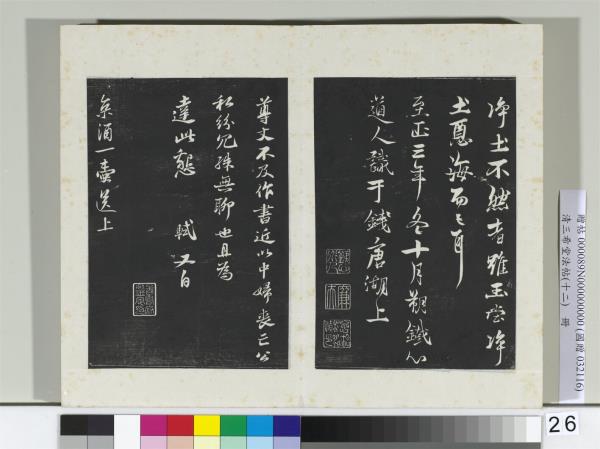 淨土不然者雖玉堂淨
土圂海而已耳
至正三年冬十月朔鐵心
道人識于錢唐湖上
尊丈不及作書近以中婦喪亡公
私紛冗殊無聊也且為
達此懇 軾又白
柰酒一壺送上
贈帖 000089N000000000 (國贈 032116)
清三希堂法帖(十二) 冊
26